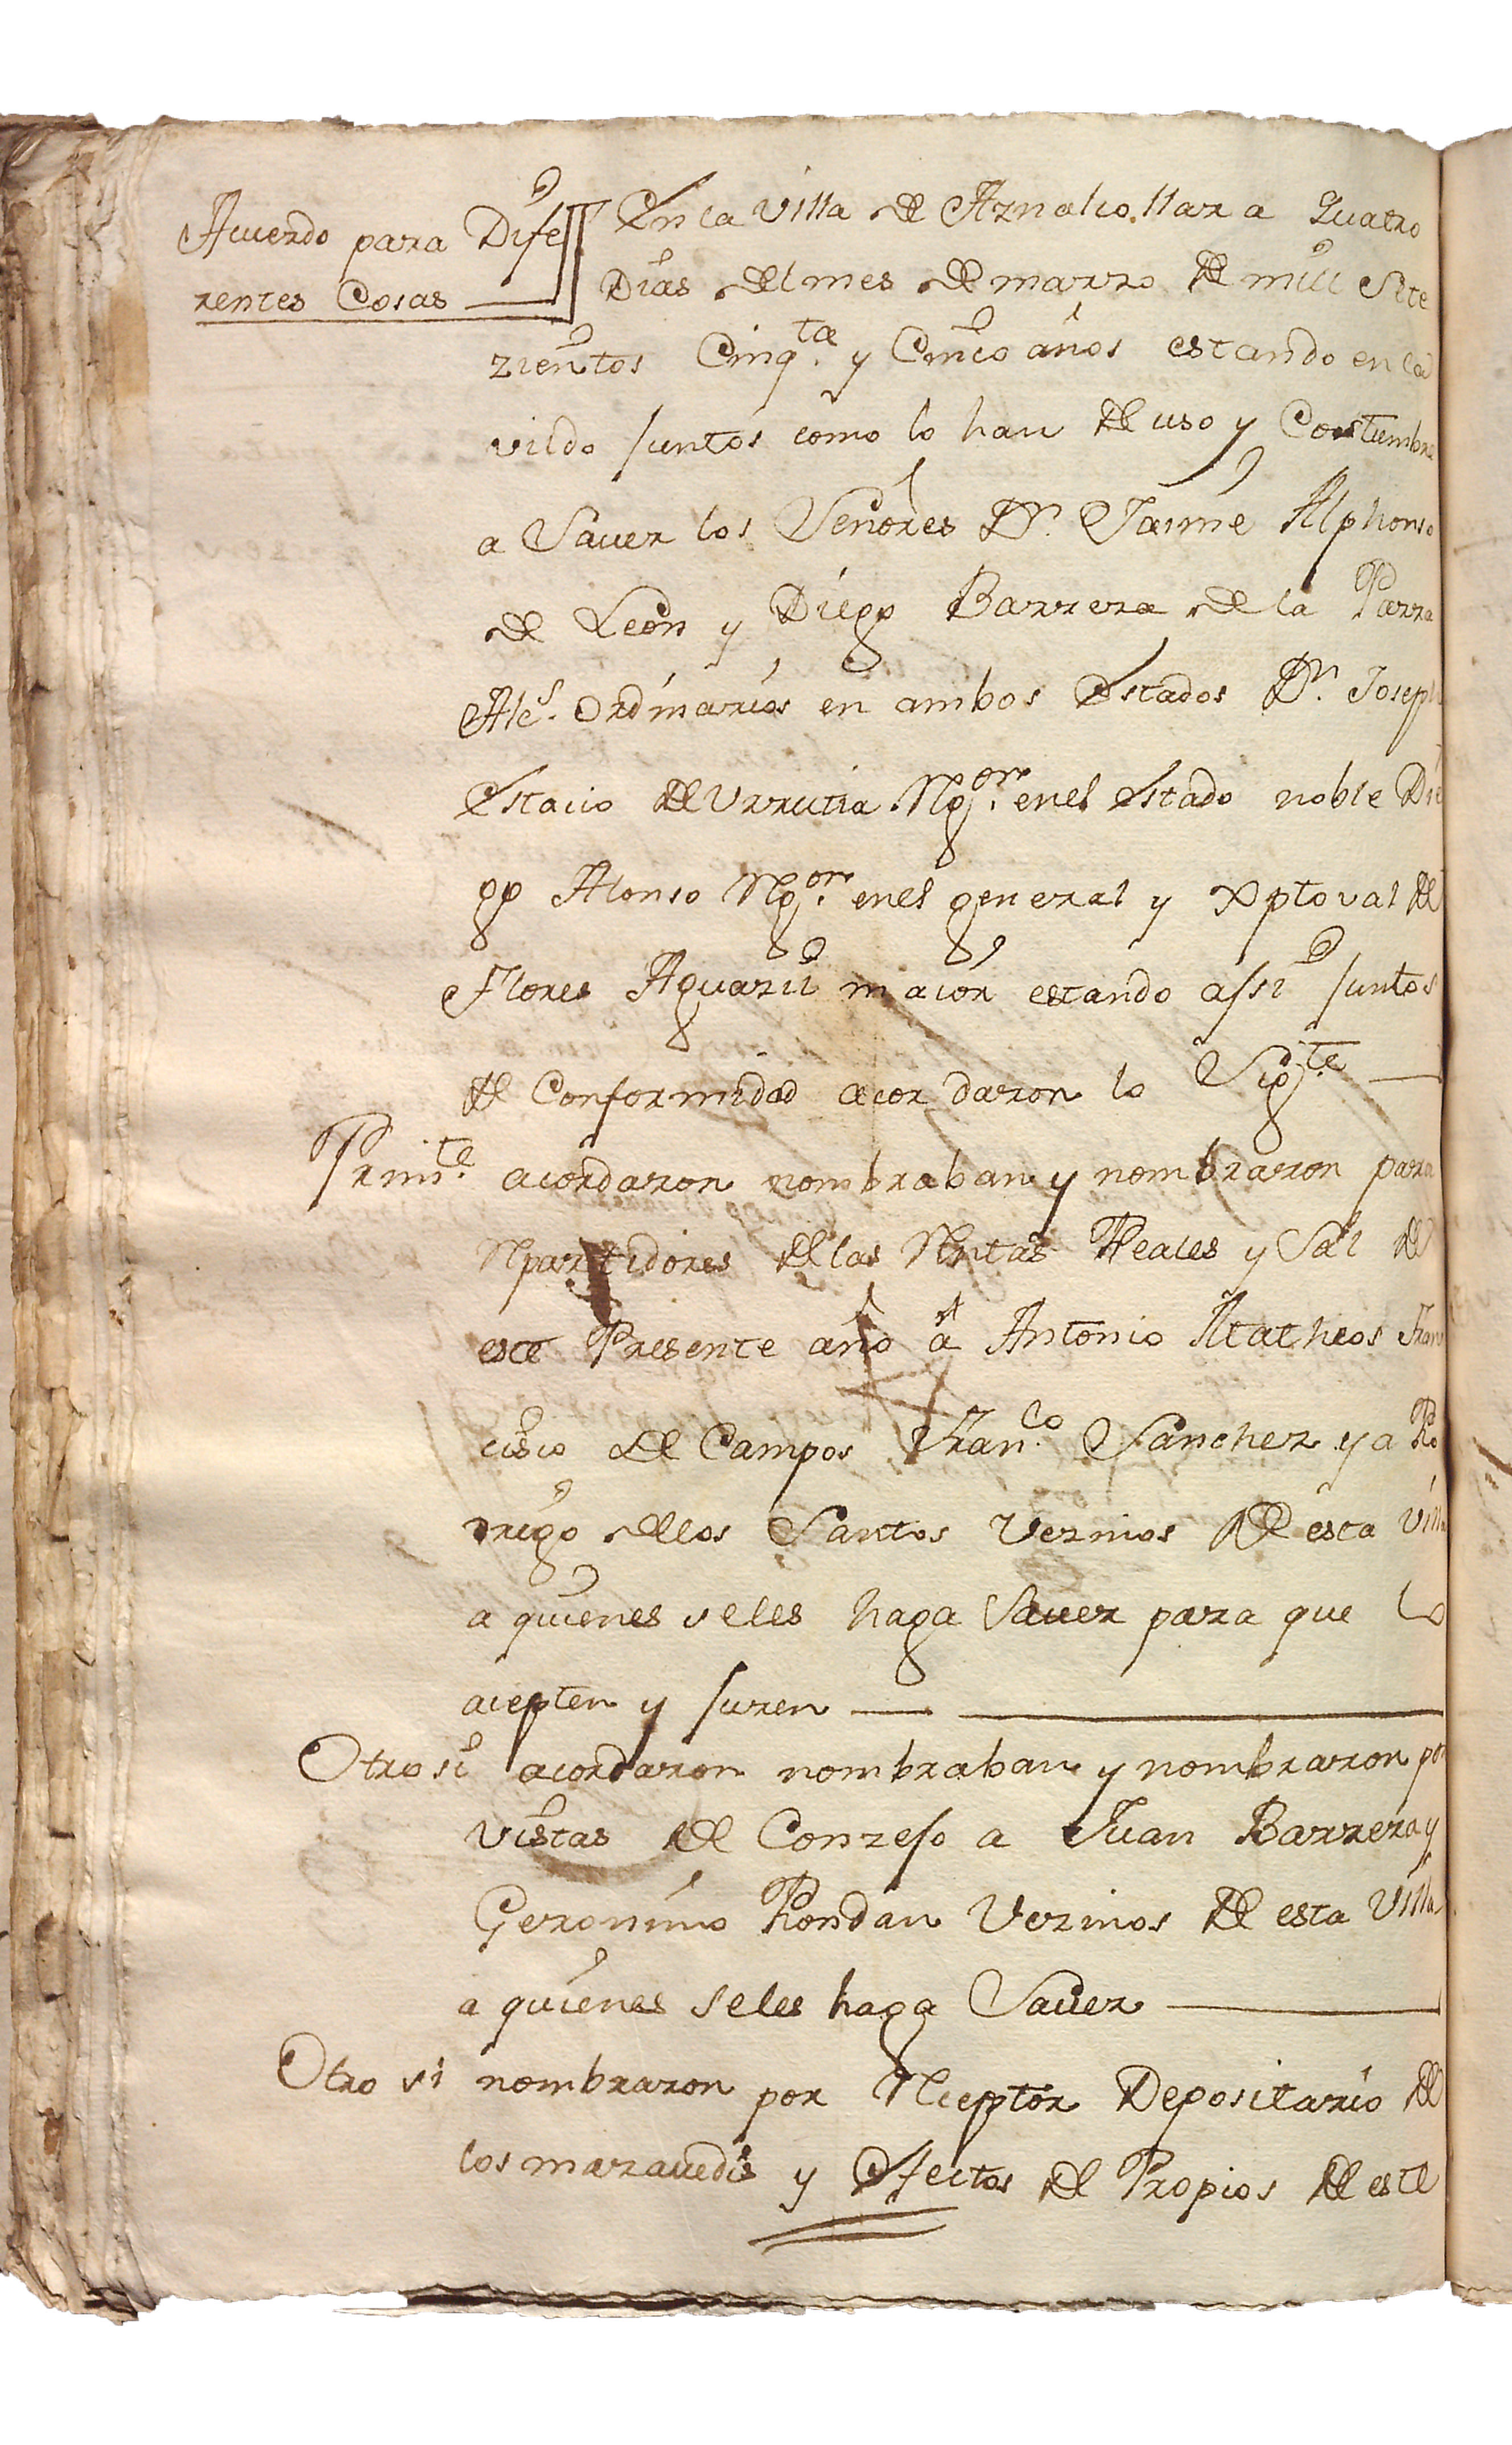 Acuerdo para Dife
rentes Cosas
En la Villa de Aznalcollar a Quatro
Dias del mes de marzo de mill Sete
zientos Cinq.ta y Cinco años estando en Ca
vildo juntos como lo han de uso y Costumbre
a Sauer los Señores Dn. Jaime Alphonso
de Leon y Diego Barrera de la Parra
Alc.s Ordinarios en ambos Estados Dn. Joseph
Estacio de Urrutia Rg.or en el Estado noble Die
go Alonso Rg.or en el general y Xptoval de
Flores Aguazil maior estando assi juntos
de Conformidad acordaron lo Sig.te
Prim.te acordaron nombraban y nombraron para
Repartidores de las Rentas Reales y Sal de
este Presente año a Antonio Matheos Fran
cisco de Campos Fran.co Sanchez y a Ro
drigo de los Santos Vezinos de esta Villa
a quienes se les haga Sauer para que lo
acepten y juren
Otro si acordaron nombraban y nombraron por
vistas de Conzejo a Juan Barrera y
Geronimo Rondan Vezinos de esta Villa
a quienes se les haga Sauer
Otro si nombraron por Rceptor Depositario de
los marauedis y Efectos de Propios de este